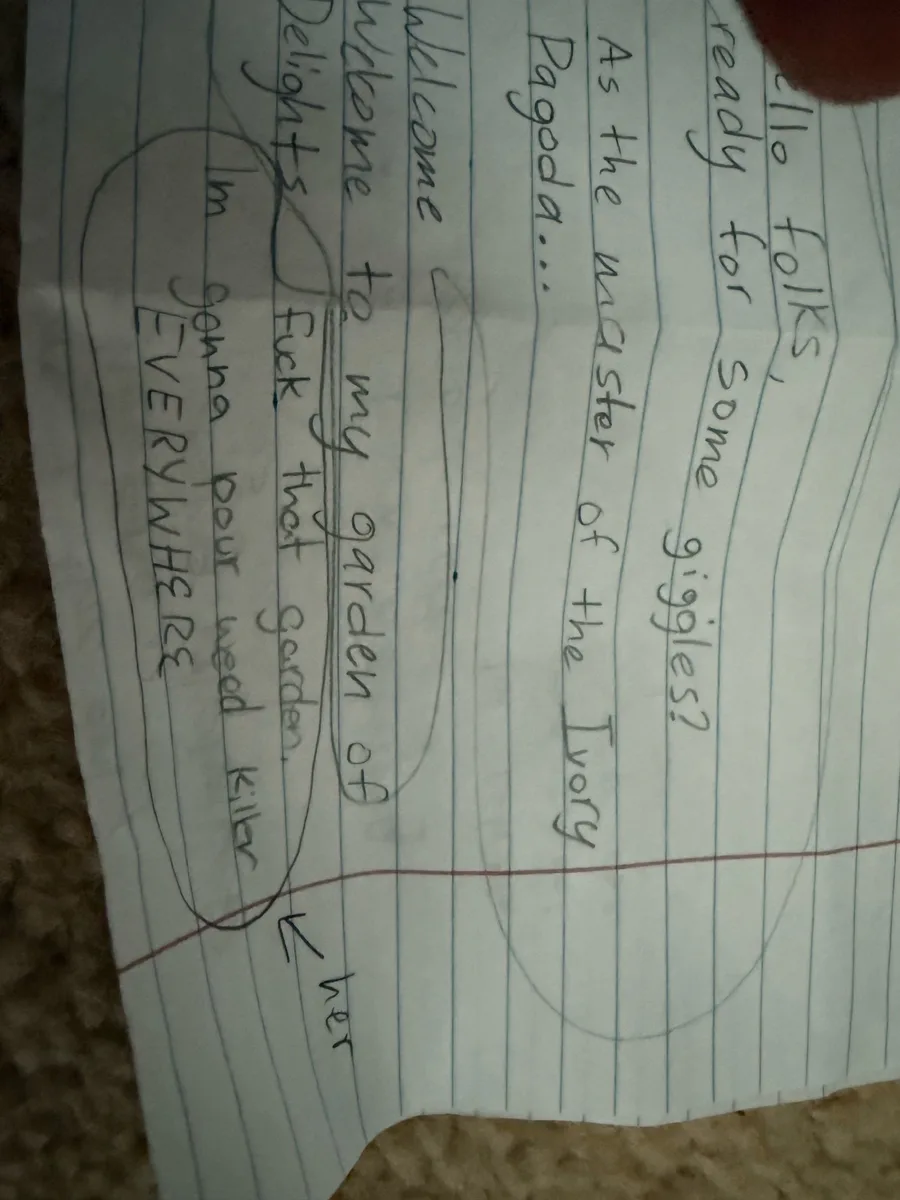 ello folks,
ready for some giggles?
As the master of the Ivory
Pagoda...
Welcome
Welcome to my garden of
Delights
fuck that garden.
Im gonna pour weed killer
EVERYWHERE
her